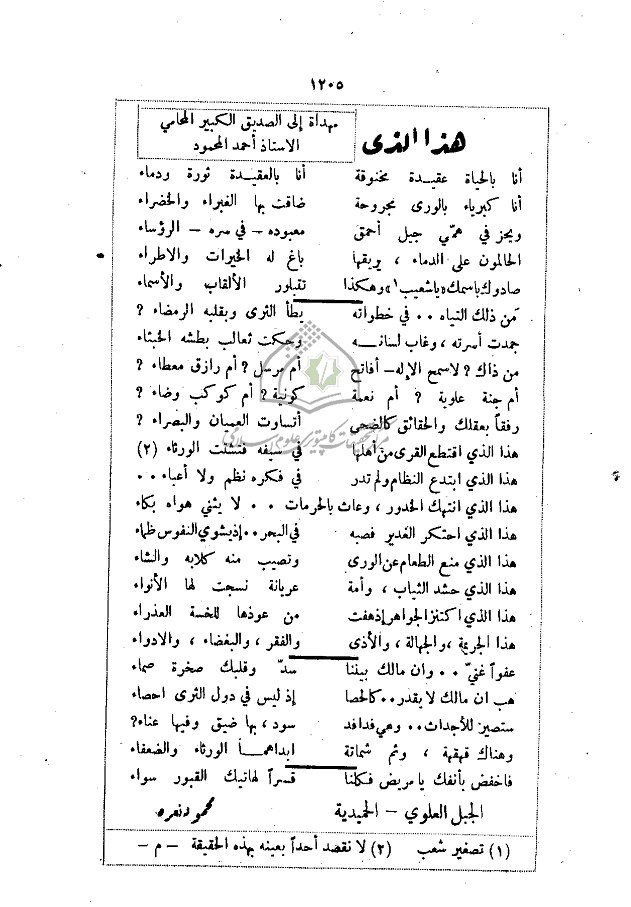 ١٢٠٥
هذا الذى
مهداة إلى الصديق الكبير المحامي
الاستاذ أحمد المحمود
أنا بالحياة عقيدة مخنوقة أنا بالعقيدة ثورة ودماء
أنا كبرياء بالورى مجروحة ضاقت بها الغبراء والخضراء
ويحز في همّي جيل أحمق معبوده - في سره - الرؤساء
الحالمون على الدماء ، يريقها باغ له الخيرات والاطراء
صادوك باسمك «يا شعيب ١» وهكذا تتبلور الألقاب والأسماء
من ذلك التياه . . في خطواته يطأ الثرى وبقلبه الرمضاء ؟
جمدت أسرته ، وغاب لسانـه وحكت ثعالب بطشه الخبثاء
من ذاك ؟ لاسمح الإله- أفاتح أم مرسل ؟ أم رازق معطاء ؟
أم جنة علوية ؟ أم نعمة كونية ؟ أم كوكب وضاء ؟
رفقاً بعقلك والحقائق كالضحى أتساوت العميان والبصراء ؟
هذا الذي اقتطع القرى من أهلها في سيفه فتشتت الورثاء (٢)
هذا الذي ابتدع النظام ولم تدر في فكره نظم ولا أعباء . .
هذا الذي انتهك الخدور ، وعاث بالحرمات . . لا يثني هواه بكاء
هذا الذي احتكر الغدير فصبه في البحر . . إذ يشوي النفوس ظماء
هذا الذي منع الطعام عن الورى وتصيب منه كلابه والشاء
هذا الذي حشد الثياب ، وأمة عريانة نسجت لها الأنواء
هذا الذي اكتنز الجواهر إذ هفت من عوذها للخسة العذراء
هذا الجريمة ، والجهالة ، والأذى والفقر ، والبغضاء ، والادواء
عفواً غنيّ . . وان مالك بيننا سدّ وقلبك صخرة صماء
هب ان مالك لا يقدر . . كالحصا إذ ليس في دول الثرى احصاء
ستصير للأجداث . . وهي فدافد سود ، بها ضيق وفيها عناء؟
وهناك قهقهة ، وثم شماتة ابداهمـا الورثاء والضعفاء
فاخفض بأنفك يا مريض فكلنا قسراً لهاتيك القبور سواء
الجبل العلوي - الحميدية
(١) تصغير شعب (٢) لا نقصد أحداً بعينه بهذه الحقيقة - م -